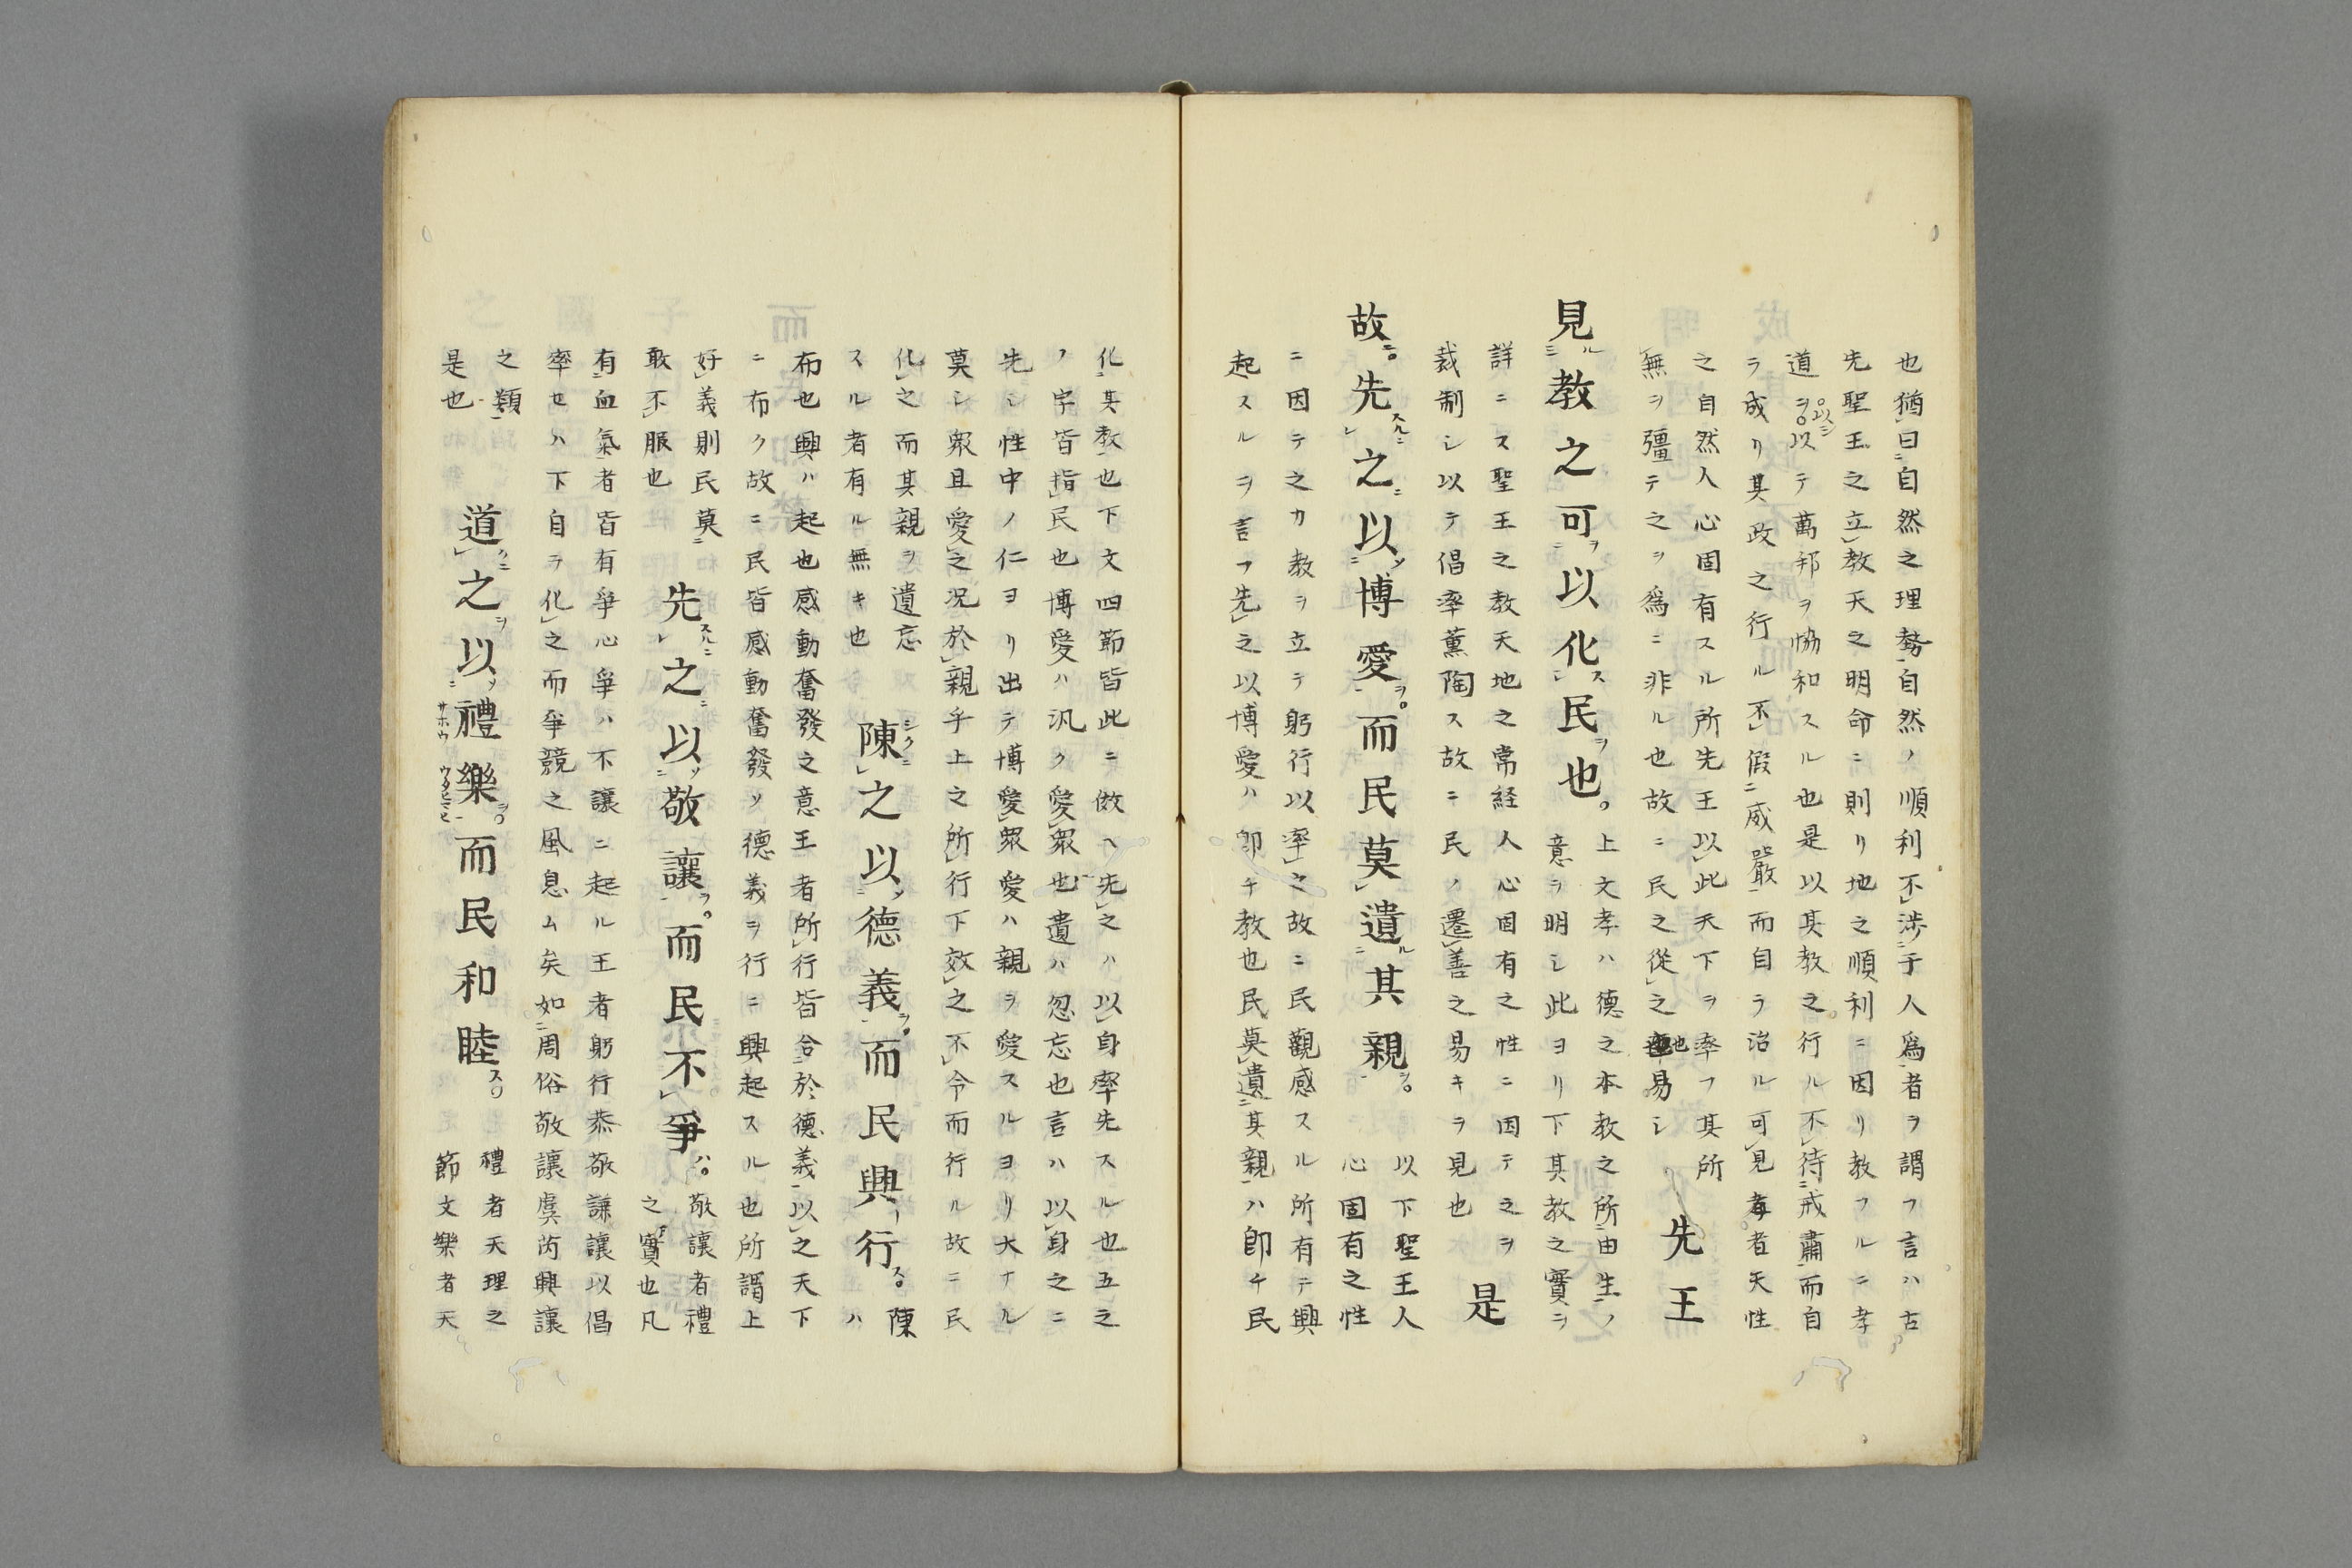 也猶曰自然之理勢自然ノ順利不渉于人為者ヲ謂フ言ハ古
先聖王之立教天之明命ニ則リ地之順利ニ因リ教フルニ孝
道ヲ以テ萬邦ヲ恊和スル也是以其教之行ル不待戒肅而自
ラ成リ其政之行ル不假威嚴而自ラ治ル可見孝者天性
之自然人心固有スル所先王以此天下ヲ率フ其所
無ヲ彊テ之ヲ為ニ非ル也故ニ民之從之也易シ
先王
見ル教之可ヲ以化ス民ヲ也
上文孝ハ德之本教之所由生ノ
意ヲ明シ此ヨリ下其教之實ヲ
詳ニス聖王之教天地之常経人心固有之性ニ因テ之ヲ
裁制シ以テ倡率薫陶ス故ニ民ノ遷善之易キヲ見也
是
故ニ先スルニ之ニ以ソ博愛ヲ而民莫遺ル其親ヲ
以下聖王人
心固有之性
ニ因テ之カ教ヲ立テ躬行以率之故ニ民觀感スル所有テ興
起スルヲ言フ先之以博愛ハ卽チ教也民莫遺其親ハ卽チ民
化其教也下文四節皆此ニ倣ヘ先之ハ以身率先スル也五之
ノ字皆指民也博愛ハ汎ク愛衆也遺ハ忽忘也言ハ以身之ニ
先シ性中ノ仁ヨリ出テ博愛衆愛ハ親ヲ愛スルヨリ大ナル
莫シ衆且愛之况於親乎上之所行下效之不令而行ル故ニ民
化之而其親ヲ遺忘
スル者有ル無キ也
陳シクニ之以ソ德義ヲ而民興行ス
陳ハ
布也興ハ起也感動奮發之意王者所行皆合於德義以之天下
ニ布ク故ニ民皆感動奮發ソ德義ヲ行ニ興起スル也所謂上
好義則民莫
敢不服也
先スルニ之ニ以ソ敬讓ヲ而民不爭ハ
敬讓者禮
之實也凡
有血氣者皆有爭心爭ハ不讓ニ起ル王者躬行恭敬謙讓以倡
率セハ下自ラ化之而爭競之風息ム矣如周俗敬讓虞芮興讓
之類
是也
道クニ之ヲ以ソ禮樂ヲ而民和睦ス
禮者天理之
節文樂者天